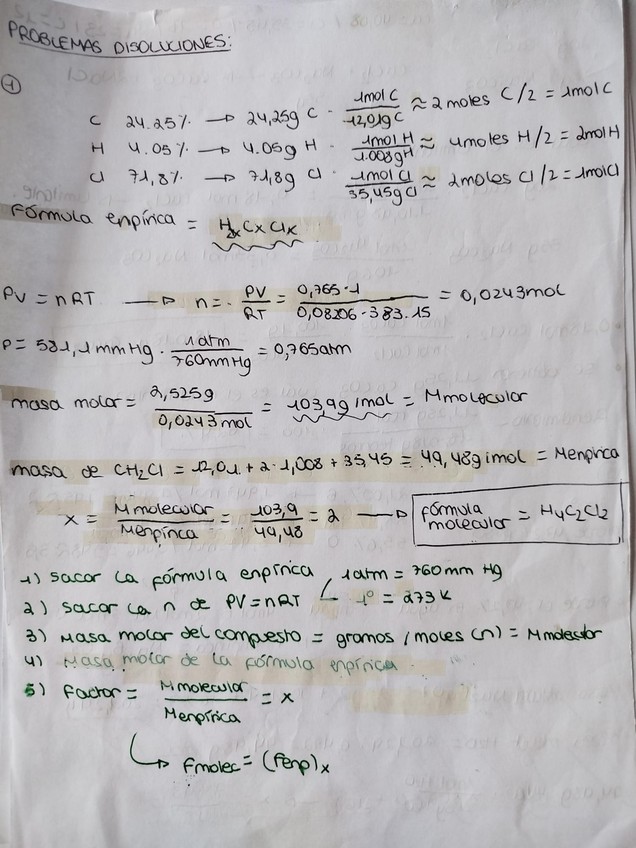 PROBLEMAS DISOLUCIONES:
1
C 24.25% → 24,25g C · 1mol C / 12,01g C ≈ 2 moles C/2 = 1mol C
H 4.05% → 4.05g H · 1mol H / 1.008g H ≈ 4moles H/2 = 2mol H
Cl 71,8% → 71,8g Cl · 1mol Cl / 35,45g Cl ≈ 2moles Cl/2 = 1mol Cl
Fórmula enpírica = H2xCxClx
PV = nRT → n = PV / RT = 0,765·1 / 0,08206·383.15 = 0,0243mol
P = 581,1mmHg · 1atm / 760mmHg = 0,765atm
masa molar = 2,525g / 0,0243mol = 103,9g/mol = Mmolecular
masa de CH2Cl = 12,01 + 2·1,008 + 35,45 = 49,48g/mol = Menpírica
x = Mmolecular / Menpírica = 103,9 / 49,48 = 2 → fórmula molecular = H4C2Cl2
1) sacar la fórmula enpírica 1atm = 760mm Hg
2) sacar la n de PV=nRT 1° = 273 K
3) Masa molar del compuesto = gramos / moles (n) = Mmolecular
4) Masa molar de la fórmula enpírica.
5) Factor = Mmolecular / Menpírica = x
↳ Fmolec = (Fenp)x